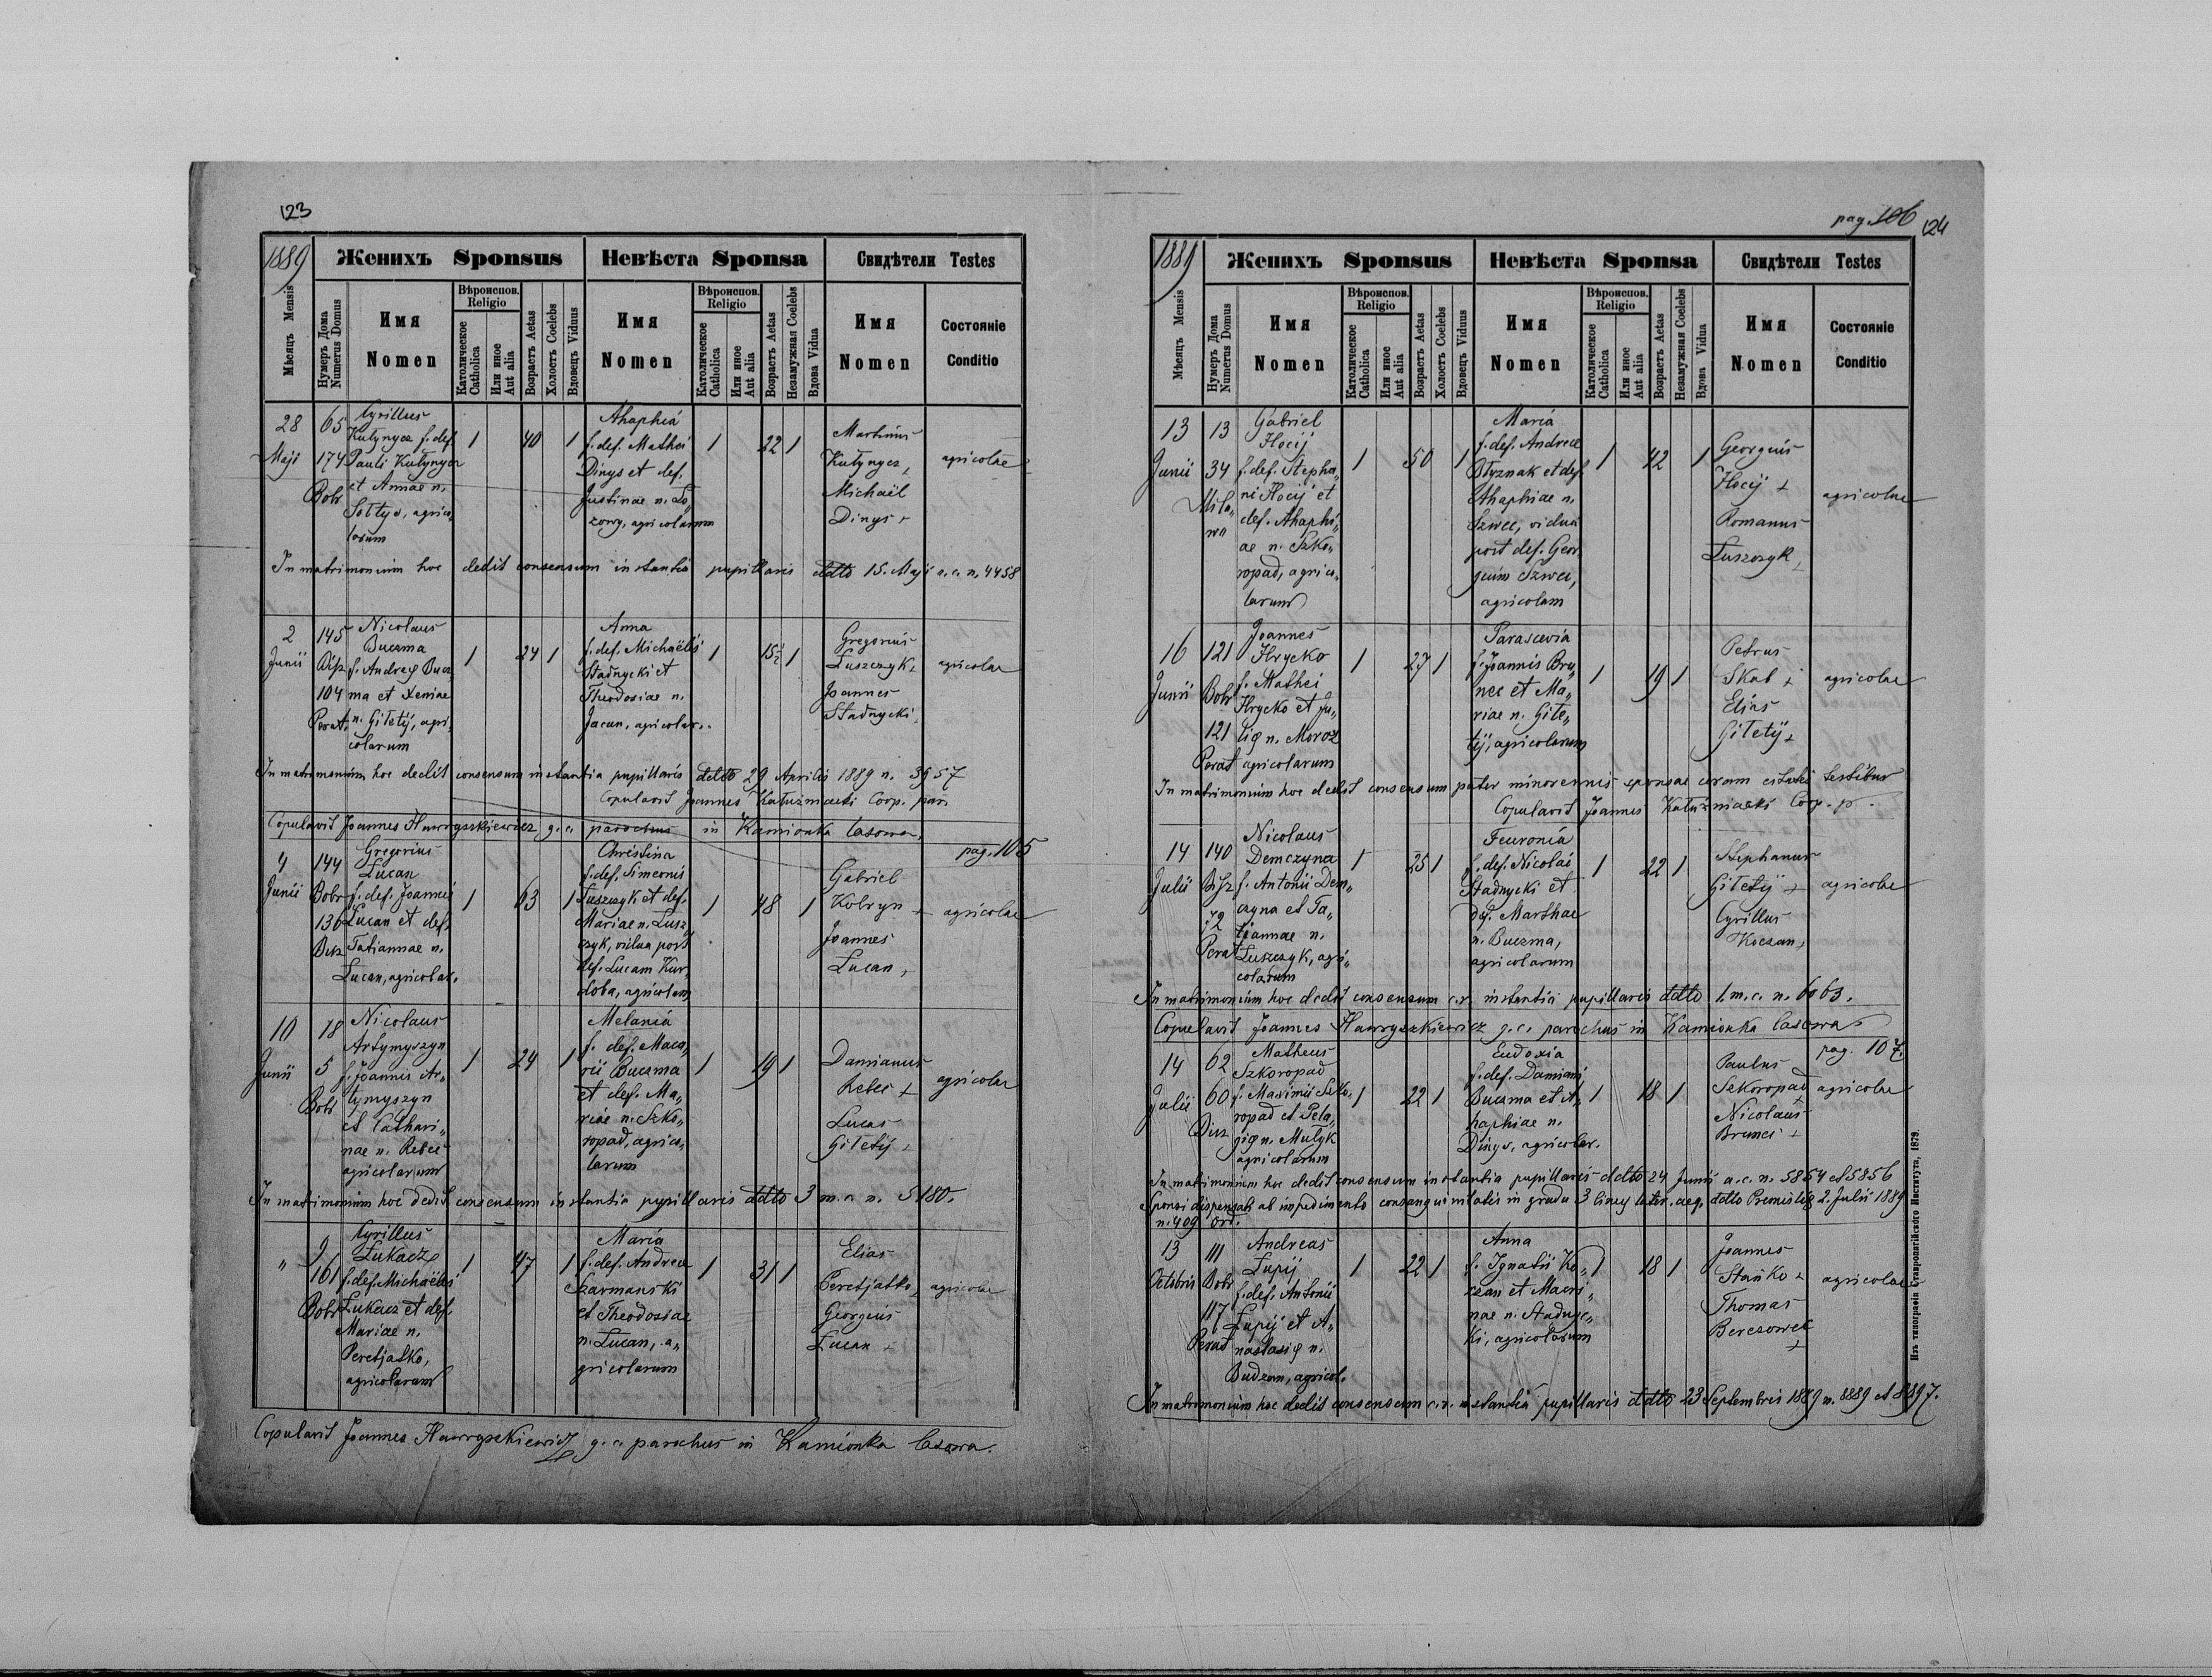 123
1889 Женихъ Sponsus Невѣста Sponsa Свидѣтели Testes
Мѣсяцъ Mensis
Нумеръ Дома Numerus Domus
Имя Nomen
Вѣроиспов. Religio
Католическое Catholica
Или иное Aut alia
Возрастъ Aetas
Холостъ Coelebs
Вдовецъ Viduus
Имя Nomen
Вѣроиспов. Religio
Католическое Catholica
Или иное Aut alia
Возрастъ Aetas
Незамужная Coelebs
Вдова Vidua
Имя Nomen
Состояніе Conditio
28 Maji
65
174
Bobr
Cyrillus
Kułynycz f. def.
Pauli Kułynycz
et Annae n.
Sołtys, agrico„
larum
1 40 1
Ahaphia
f. def. Mathei
Dinys et def.
Justinae n. Ło„
zowy, agricolarum
1 22 1
Martinus
Kułynycz +
Michaël
Dinys +
agricolae
In matrimonium hoc dedit consensum instantia pupillaris ddto 15. Maji a. c. n. 4458
2 Junii
145
Disz
104
Perat.
Nicolaus
Buczma
f. Andreę Bucz
ma et Xeniae
n. Giletij, agri„
colarum
1 24 1
Anna
f. def. Michaëlis
Stadnycki et
Theodosiae n.
Jacun, agricolar.
1 15½ 1
Gregorius
Łuszczyk +
Joannes
Stadnycki
agricolae
In matrimonium hoc dedit consensum instantia pupillaris ddto 29 Aprilis 1889 n. 3957
Copulavit Joannes Kałużniacki Coop. par.
Copulavit Joannes Hawryszkiewicz g. c. parochus in Kamionka lasowa.
pag. 105
4 Junii
144
Bobr
130
Disz
Gregorius
Łucan
f. def. Joannis
Łucan et def.
Tatiannae n.
Łucan, agricolar.
1 63 1
Christina
f. def. Simeonis
Łuszczyk et def.
Mariae n. Łusz
czyk, vidua post
def. Lucam Kur„
doba, agricolam
1 48 1
Gabriel
Kobryn +
Joannes
Łucan +
agricolae
10 Junii
18
5
Bobr
Nicolaus
Artymyszyn
f. Joannis Ar„
tymyszyn
et Cathari„
nae n. Rebec
agricolarum
1 24 1
Melania
f. def. Maca„
rii Buczma
et def. Ma„
riae n. Szko„
ropad, agrico„
larum
1 19 1
Damianus
Rebec +
Lucas
Giletij +
agricolae
In matrimonium hoc dedit consensum instantia pupillaris ddto 3 m. c. n. 5180.
„
9
161
Bobr
Cyrillus
Łukacz
f. def. Michaëlis
Łukacz et def.
Mariae n.
Peretjatko,
agricolarum
1 47 1
Maria
f. def. Andreae
Szarmanski
et Theodosiae
n. Łucan, a„
gricolarum
1 31 1
Elias
Peretjatko +
Georgius
Łucan +
agricolae
Copulavit Joannes Hawryszkiewicz g. c. parochus in Kamionka lasowa.
pag. 106 124
1889 Женихъ Sponsus Невѣста Sponsa Свидѣтели Testes
Мѣсяцъ Mensis
Нумеръ Дома Numerus Domus
Имя Nomen
Вѣроиспов. Religio
Католическое Catholica
Или иное Aut alia
Возрастъ Aetas
Холостъ Coelebs
Вдовецъ Viduus
Имя Nomen
Вѣроиспов. Religio
Католическое Catholica
Или иное Aut alia
Возрастъ Aetas
Незамужная Coelebs
Вдова Vidua
Имя Nomen
Состояніе Conditio
13 Junii
13
34
Miło„
wa
Gabriel
Hocij
f. def. Stepha„
ni Hocij et
def. Ahaphi„
ae n. Szko„
ropad, agrico„
larum
1 50 1
Maria
f. def. Andreae
et def.
Ahaphiae n.
Szwec, vidua
post def. Geor„
gium Szwec,
agricolam
1 42 1
Georgius
Hocij +
Romanus
Łuszczyk +
agricolae
16 Junii
121
Bobr
121
Perat
Joannes
Hrycko
f. Mathei
Hrycko et Ju„
lię n. Moroz
agricolarum
1 27 1
Parascevia
f. Joannis Bru„
nec et Ma„
riae n. Gile„
tij, agricolarum
1 19 1
Petrus
Skab +
Elias
Giletij +
agricolae
In matrimonium hoc dedit consensum pater minorennis sponsae coram citatis testibus
Copulavit Joannes Kałużniacki Coop. p.
14 Julii
140
Disz
72
Perat
Nicolaus
Demczyna
f. Antonii Dem„
czyna et Ta„
tiannae n.
Łuszczyk, agri„
colarum
1 25 1
Feuronia
f. def. Nicolai
Stadnycki et
def. Marthae
n. Buczma,
agricolarum
1 22 1
Stephanus
Giletij +
Cyrillus
Koczan +
agricolae
In matrimonium hoc dedit consensum c. r. instantia pupillaris ddto 1. m. c. n. 6063.
Copulavit Joannes Hawryszkiewicz g. c. parochus in Kamionka lasowa
pag. 107.
14 Julii
62
60
Disz
Matheus
Szkoropad
f. Maximii Szko„
ropad et Pela„
gię n. Mułyk
agricolarum
1 22 1
Eudoxia
f. def. Damiani
Buczma et A„
haphiae n.
Dinys, agricolar.
1 18 1
Paulus
Szkoropad +
Nicolaus
Brunec +
agricolae
In matrimonium hoc dedit consensum instantia pupillaris ddto 24 Junii a. c. n. 5854 et 5856
Sponsi dispensati ab impedimento consanguinitatis in gradu 3 lineę later. aeq. ddto Premislię 2. Julii 1889
n. 409 ord.
13 Octobris
111
Bobr
117
Perat
Andreas
Łupij
f. def. Antonii
Łupij et A„
nastasię n.
Budzan, agricol.
1 22 1
Anna
f. Ignatii Ko„
czan et Macri„
nae n. Stadnyc„
ki, agricolarum
1 18 1
Joannes
Stańko +
Thomas
Berezowec
+
agricolae
In matrimonium hoc dedit consensum c. r. instantia pupillaris ddto 23 Septembris 1889 n. 8889 et 8897.
Изъ типографіи Ставропигійского Института, 1879.